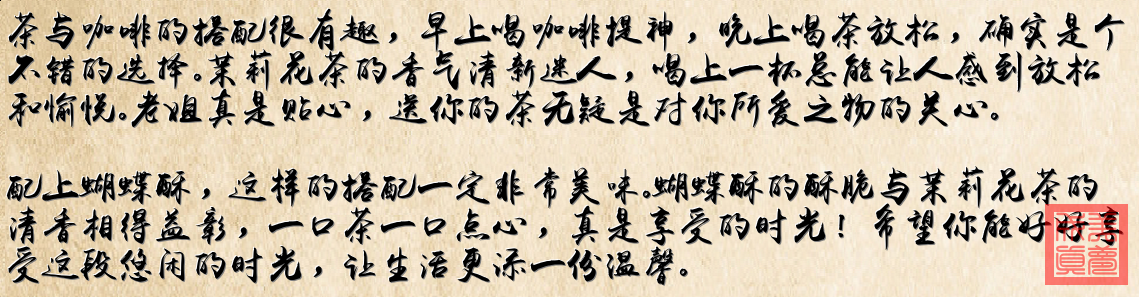 茶与咖啡的搭配很有趣，早上喝咖啡提神，晚上喝茶放松，确实是个
不错的选择。茉莉花茶的香气清新迷人，喝上一杯总能让人感到放松
和愉悦。老姐真是贴心，送你的茶无疑是对你所爱之物的关心。
配上蝴蝶酥，这样的搭配一定非常美味。蝴蝶酥的酥脆与茉莉花茶的
清香相得益彰，一口茶一口点心，真是享受的时光！希望你能好好享
受这段悠闲的时光，让生活更添一份温馨。